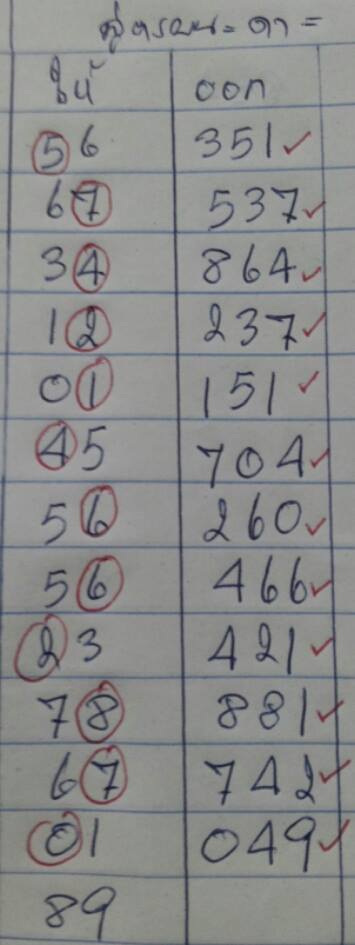 สูตรบน = ดา =
ให้ ออก
56 351
67 537
34 864
12 237
01 151
45 704
56 260
56 466
23 421
78 881
67 742
01 049
89